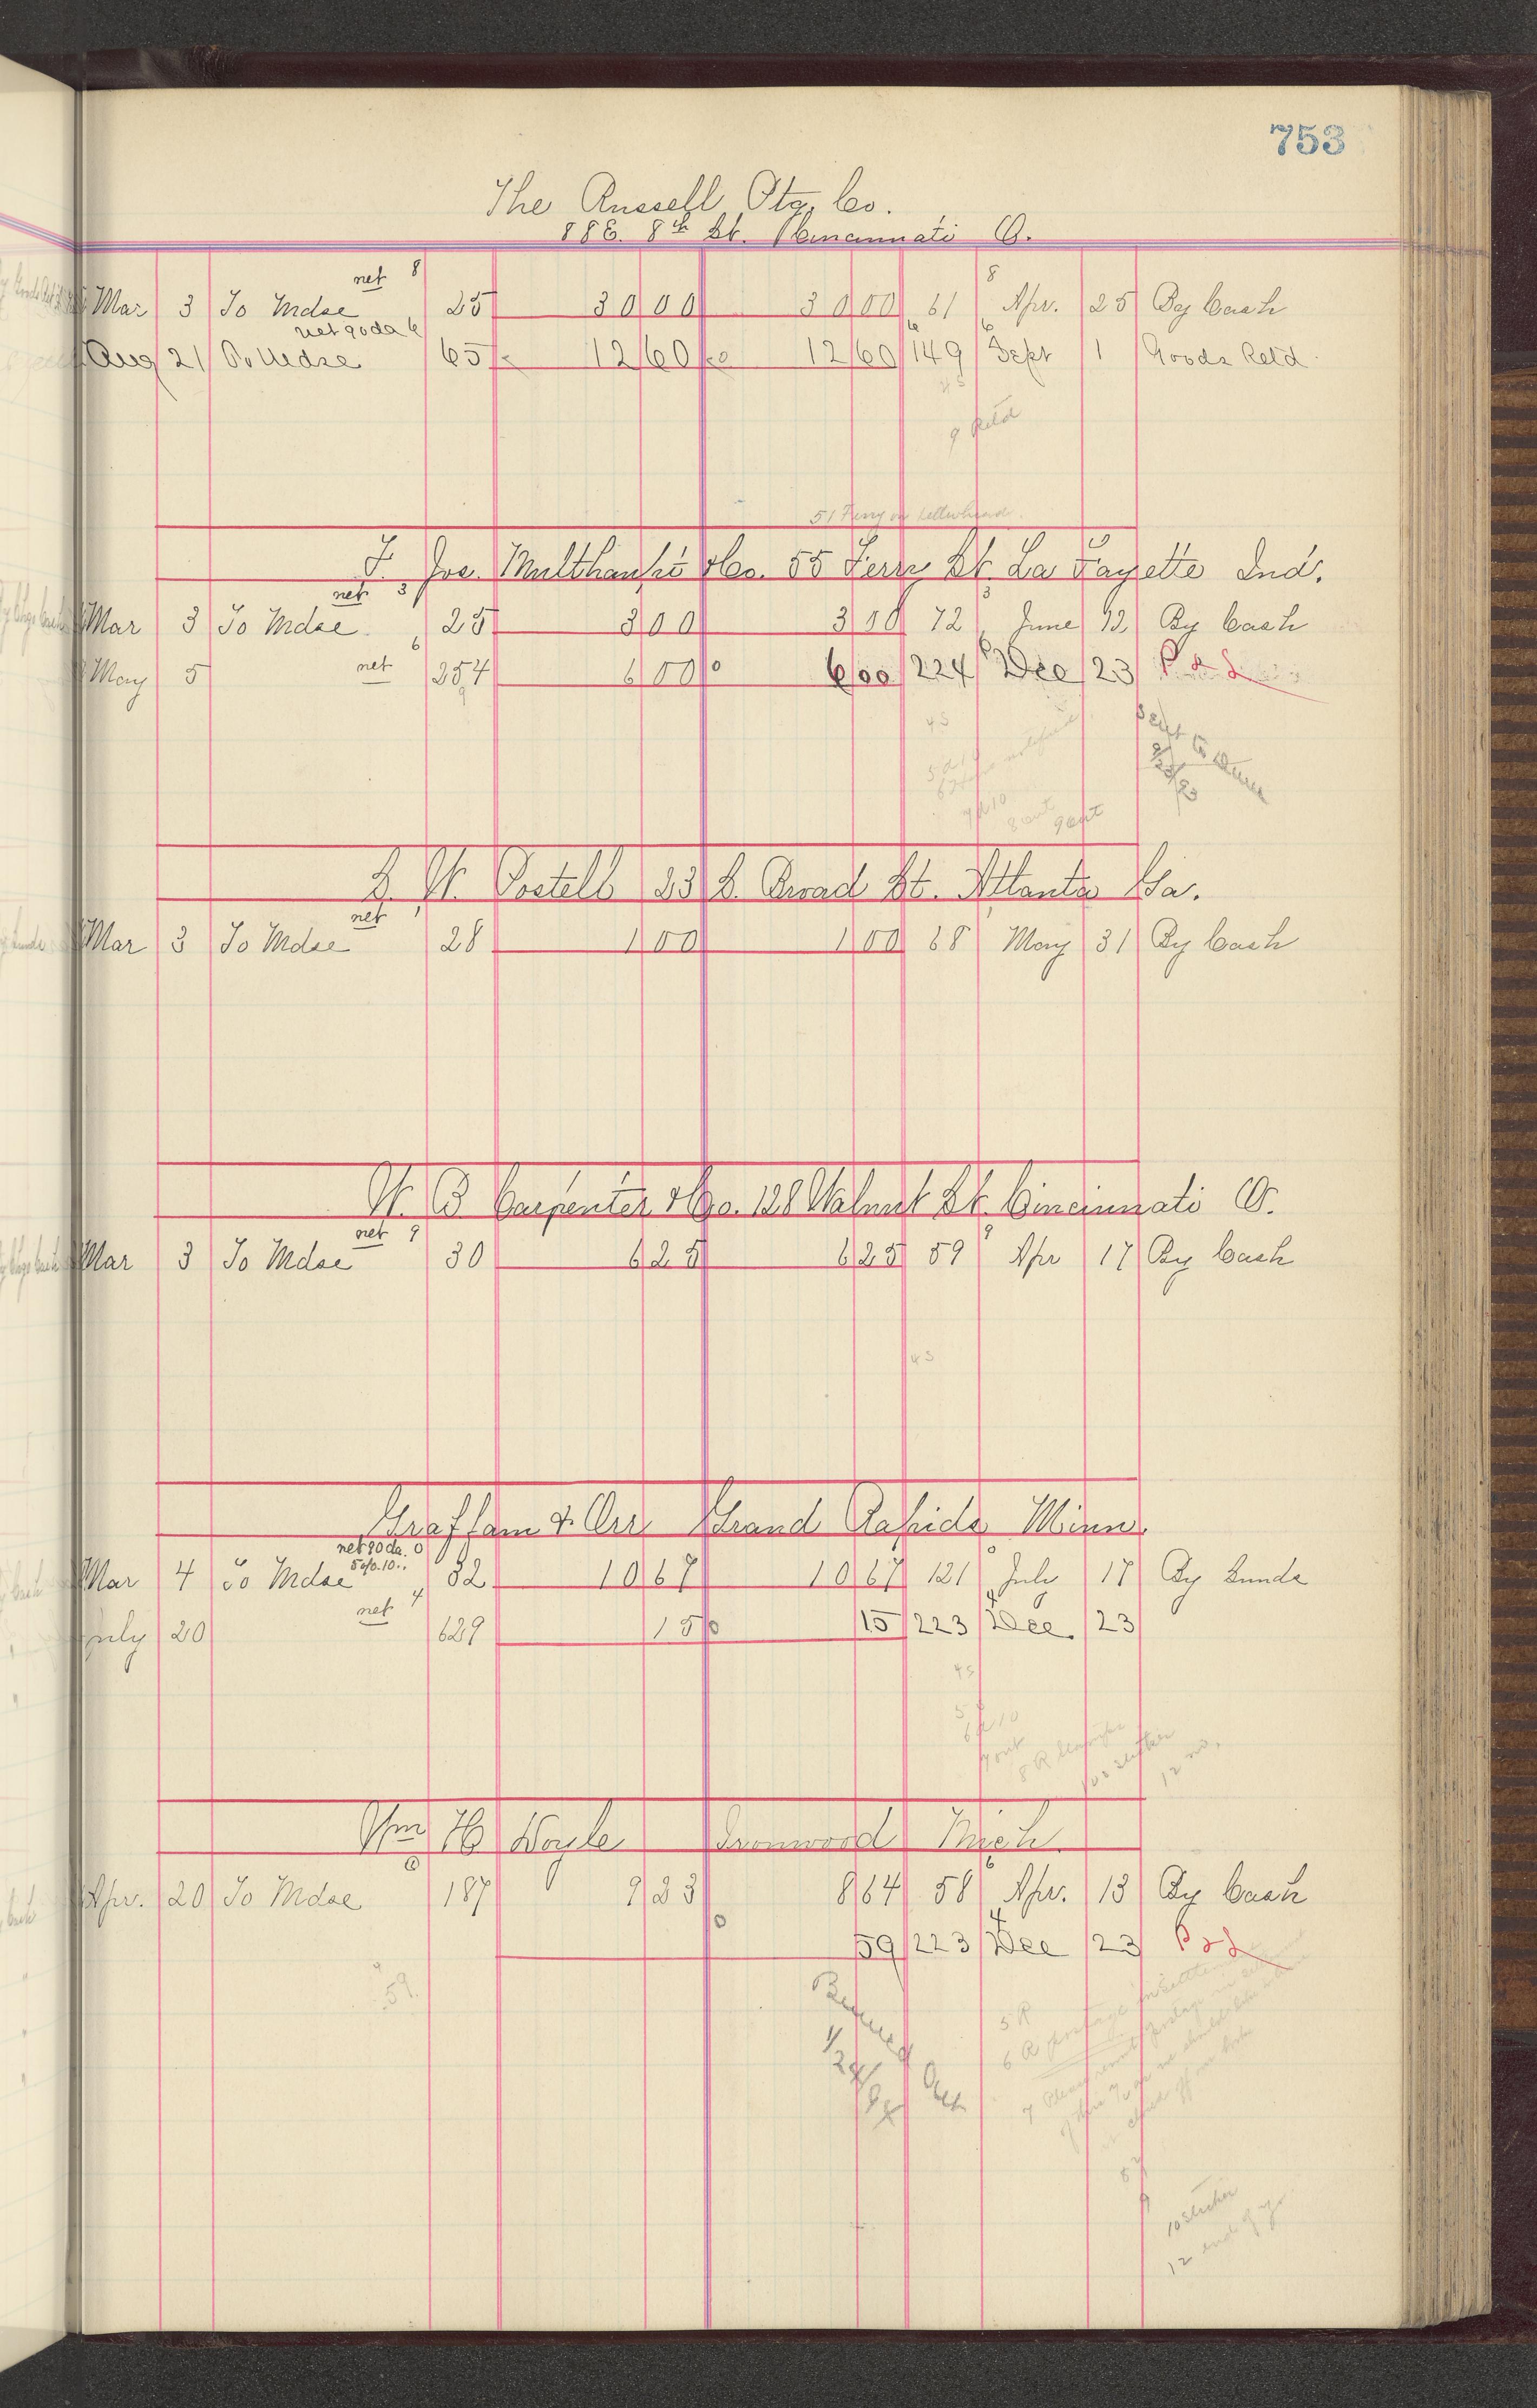 753
The Russell Ptg. Co.
8th St. Cincinnati O.
net 8 8
Mar 3 To Mdse 25 30 00 30 00 61 Apr. 25 By Cash
net 90 da 6 6 6
Aug 21 To Mdse 65 12 60 12 60 149 Sept 1 Goods Retd
45
9 Retd
51 Ferry on letterhead
J. Jos. & Co. 55 Ferry St. La Fayette Ind.
net 3 3
Mar 3 To Mdse 25 3 00 3 00 72 June 12 By Cash
May 5 net 6 254 6 00 0 6 00 224 6 Dec 23 P & L
9
45 Sent to
7 D 10
8 out 9 out
S. W. Postell 23 S. Broad St. Atlanta Ga.
net
Mar 3 To Mdse 28 1 00 1 00 68 May 31 By Cash
W. B Carpenter & Co. 128 Walnut St. Cincinnati O.
net 9 9
Mar 3 To Mdse 30 6 25 6 25 59 Apr 17 By Cash
45
Graffam & Orr Grand Rapids Minn.
net 90 da. 0 0
5%.10..
Mar 4 To Mdse 32 10 67 10 67 121 July 17 By Sunds
July 20 net 4 629 15 0 15 223 4 Dec. 23
45
5
6 D 10
7 out
12 no.
Wm H Hoyle Ironwood Mich.
6 6
Apr. 20 To Mdse 187 9 23 8 64 58 Apr. 13 By Cash
0 59 223 4 Dec 23 P & L
59
5 R
6 R postage
7 Please remit postage
10 sticker
12 end of yr